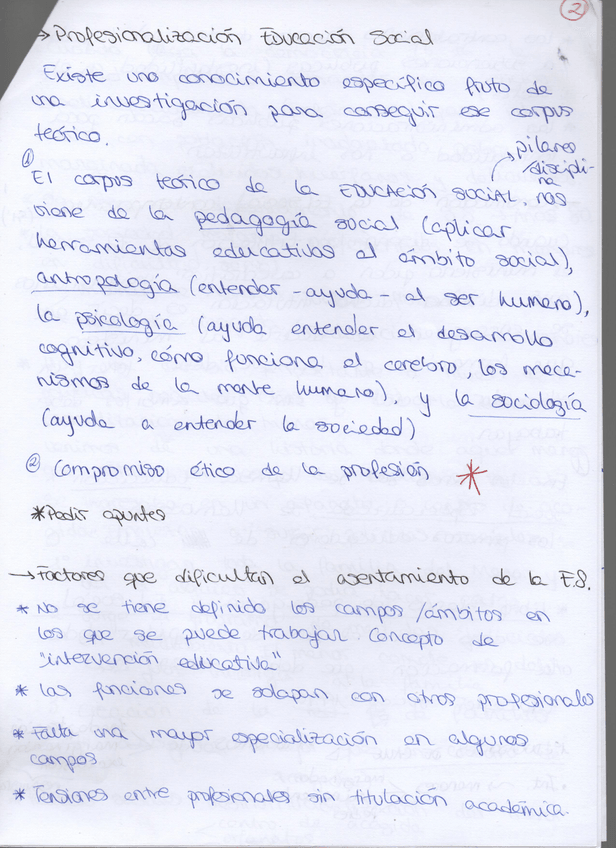 2
→ Profesionalización Educación Social
Existe una conocimiento específico fruto de
una investigación para conseguir ese corpus
teórico.
pilares
discipli-
na
① El corpus teórico de la EDUCACIÓN SOCIAL, nos
viene de la pedagogía social (aplicar
herramientas educativas al ámbito social),
antropología (entender -ayuda- al ser humano),
la psicología (ayuda entender el desarrollo
cognitivo, cómo funciona el cerebro, los meca-
nismos de la mente humana) y la sociología
(ayuda a entender la sociedad)
② Compromiso ético de la profesión *
*Pedir apuntes
→ Factores que dificultan el asentamiento de la E.S.
* No se tiene definido los campos/ámbitos en
los que se puede trabajar. Concepto de
"intervención educativa"
* Las funciones se solapan con otros profesionales
* Falta una mayor especialización en algunos
campos
* Tensiones entre profesionales sin titulación académica.